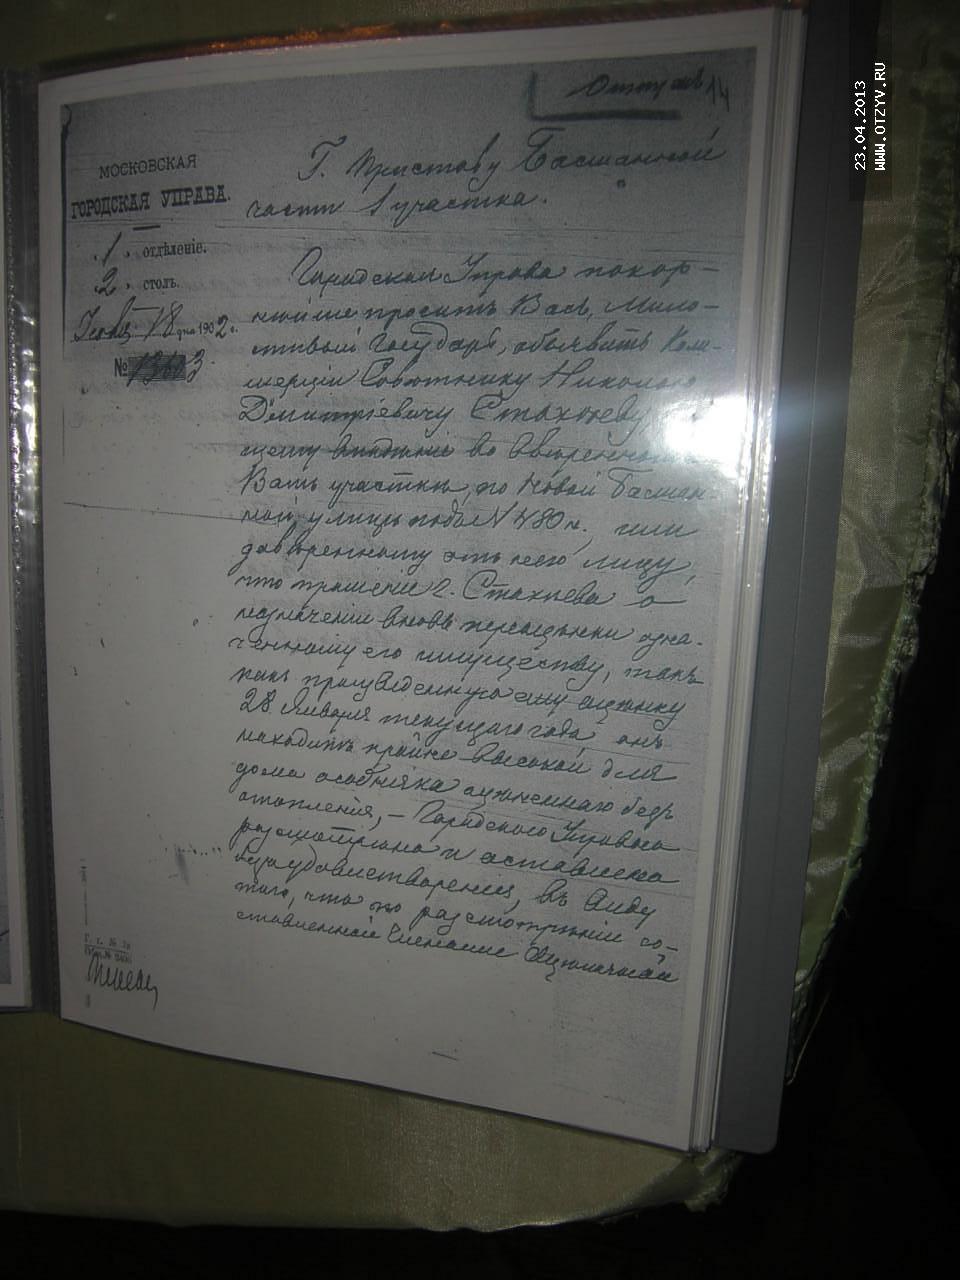 Отпускъ 14
МОСКОВСКАЯ
ГОРОДСКАЯ УПРАВА.
1 отдѣленіе.
2 столъ.
18 дня 1902 г.
№ 13613
Г. Приставу Басманной
части 1 участка.
Городская Управа покор-
нѣйше проситъ Васъ, Мило-
стивый Государь, объявить Ком-
мерціи Совѣтнику Николаю
Дмитріевичу Стахѣеву
во ввѣренномъ
Вамъ участкѣ, по Новой Басман-
ной улицѣ подъ № 480 г., или
довѣренному отъ него лицу,
что прошеніе г. Стахѣева о
назначеніи вновь переоцѣнки озна-
ченному его имуществу, такъ
какъ произведенную ему оцѣнку
28 Января текущаго года онъ
находитъ крайне высокой для
дома особняка оцѣненнаго безъ
отопленія, – Городскою Управою
разсмотрѣно и оставлено
безъ удовлетворенія, въ виду
того, что по разсмотрѣніи со-
ставленной Членами Оцѣночной
23.04.2013
WWW.OTZYV.RU